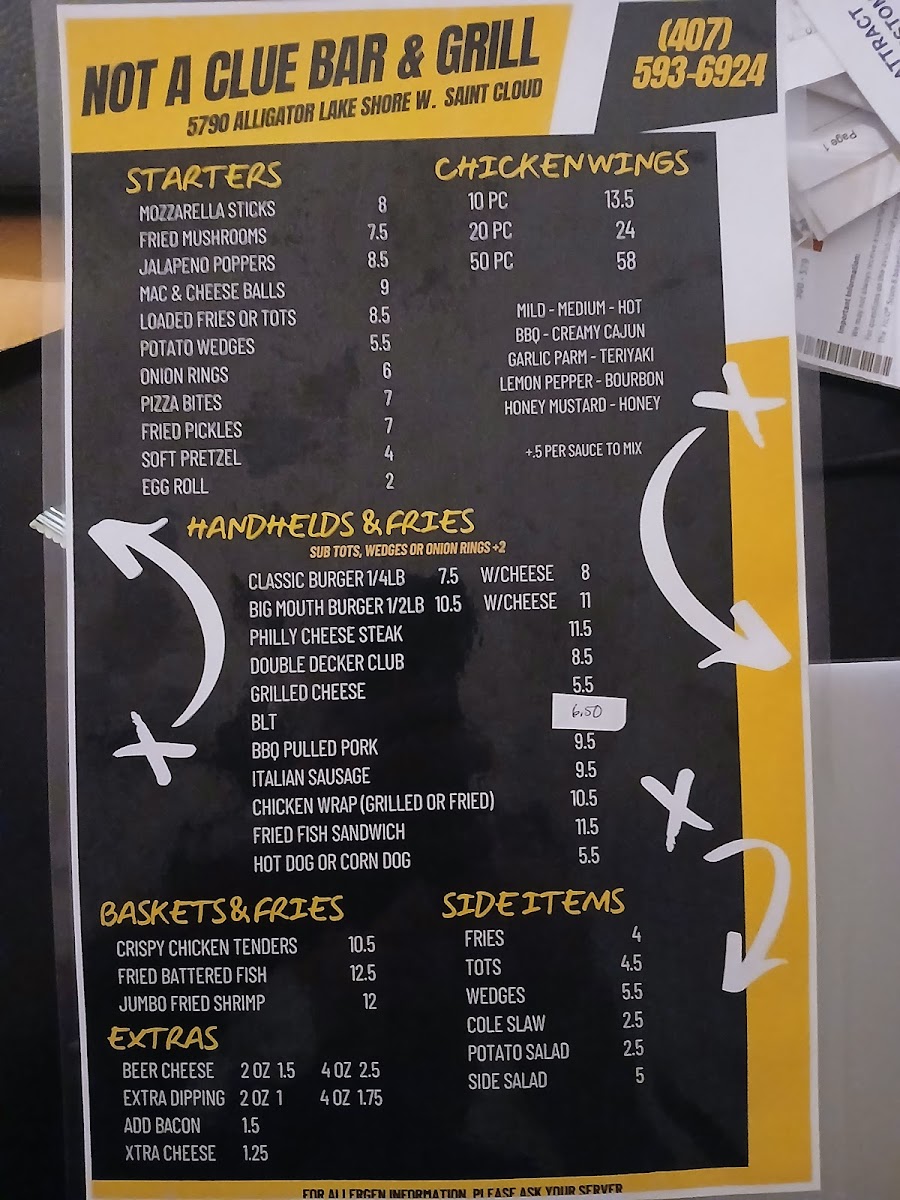 NOT A CLUE BAR & GRILL
5790 ALLIGATOR LAKE SHORE W. SAINT CLOUD
(407)
593-6924
STARTERS
MOZZARELLA STICKS 8
FRIED MUSHROOMS 7.5
JALAPENO POPPERS 8.5
MAC & CHEESE BALLS 9
LOADED FRIES OR TOTS 8.5
POTATO WEDGES 5.5
ONION RINGS 6
PIZZA BITES 7
FRIED PICKLES 7
SOFT PRETZEL 4
EGG ROLL 2
CHICKEN WINGS
10 PC 13.5
20 PC 24
50 PC 58
MILD - MEDIUM - HOT
BBQ - CREAMY CAJUN
GARLIC PARM - TERIYAKI
LEMON PEPPER - BOURBON
HONEY MUSTARD - HONEY
+.5 PER SAUCE TO MIX
HANDHELDS & FRIES
SUB TOTS, WEDGES OR ONION RINGS +2
CLASSIC BURGER 1/4LB 7.5 W/CHEESE 8
BIG MOUTH BURGER 1/2LB 10.5 W/CHEESE 11
PHILLY CHEESE STEAK 11.5
DOUBLE DECKER CLUB 8.5
GRILLED CHEESE 5.5
BLT 6.50
BBQ PULLED PORK 9.5
ITALIAN SAUSAGE 9.5
CHICKEN WRAP (GRILLED OR FRIED) 10.5
FRIED FISH SANDWICH 11.5
HOT DOG OR CORN DOG 5.5
BASKETS & FRIES
CRISPY CHICKEN TENDERS 10.5
FRIED BATTERED FISH 12.5
JUMBO FRIED SHRIMP 12
EXTRAS
BEER CHEESE 2 OZ 1.5 4 OZ 2.5
EXTRA DIPPING 2 OZ 1 4 OZ 1.75
ADD BACON 1.5
XTRA CHEESE 1.25
SIDE ITEMS
FRIES 4
TOTS 4.5
WEDGES 5.5
COLE SLAW 2.5
POTATO SALAD 2.5
SIDE SALAD 5
FOR ALLERGEN INFORMATION, PLEASE ASK YOUR SERVER
Page 1
Important Information: